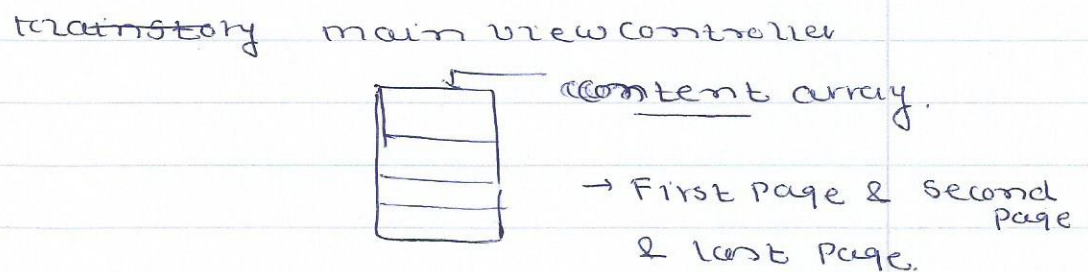 main viewcontroller
content array.
→ First page & second page
& last page.